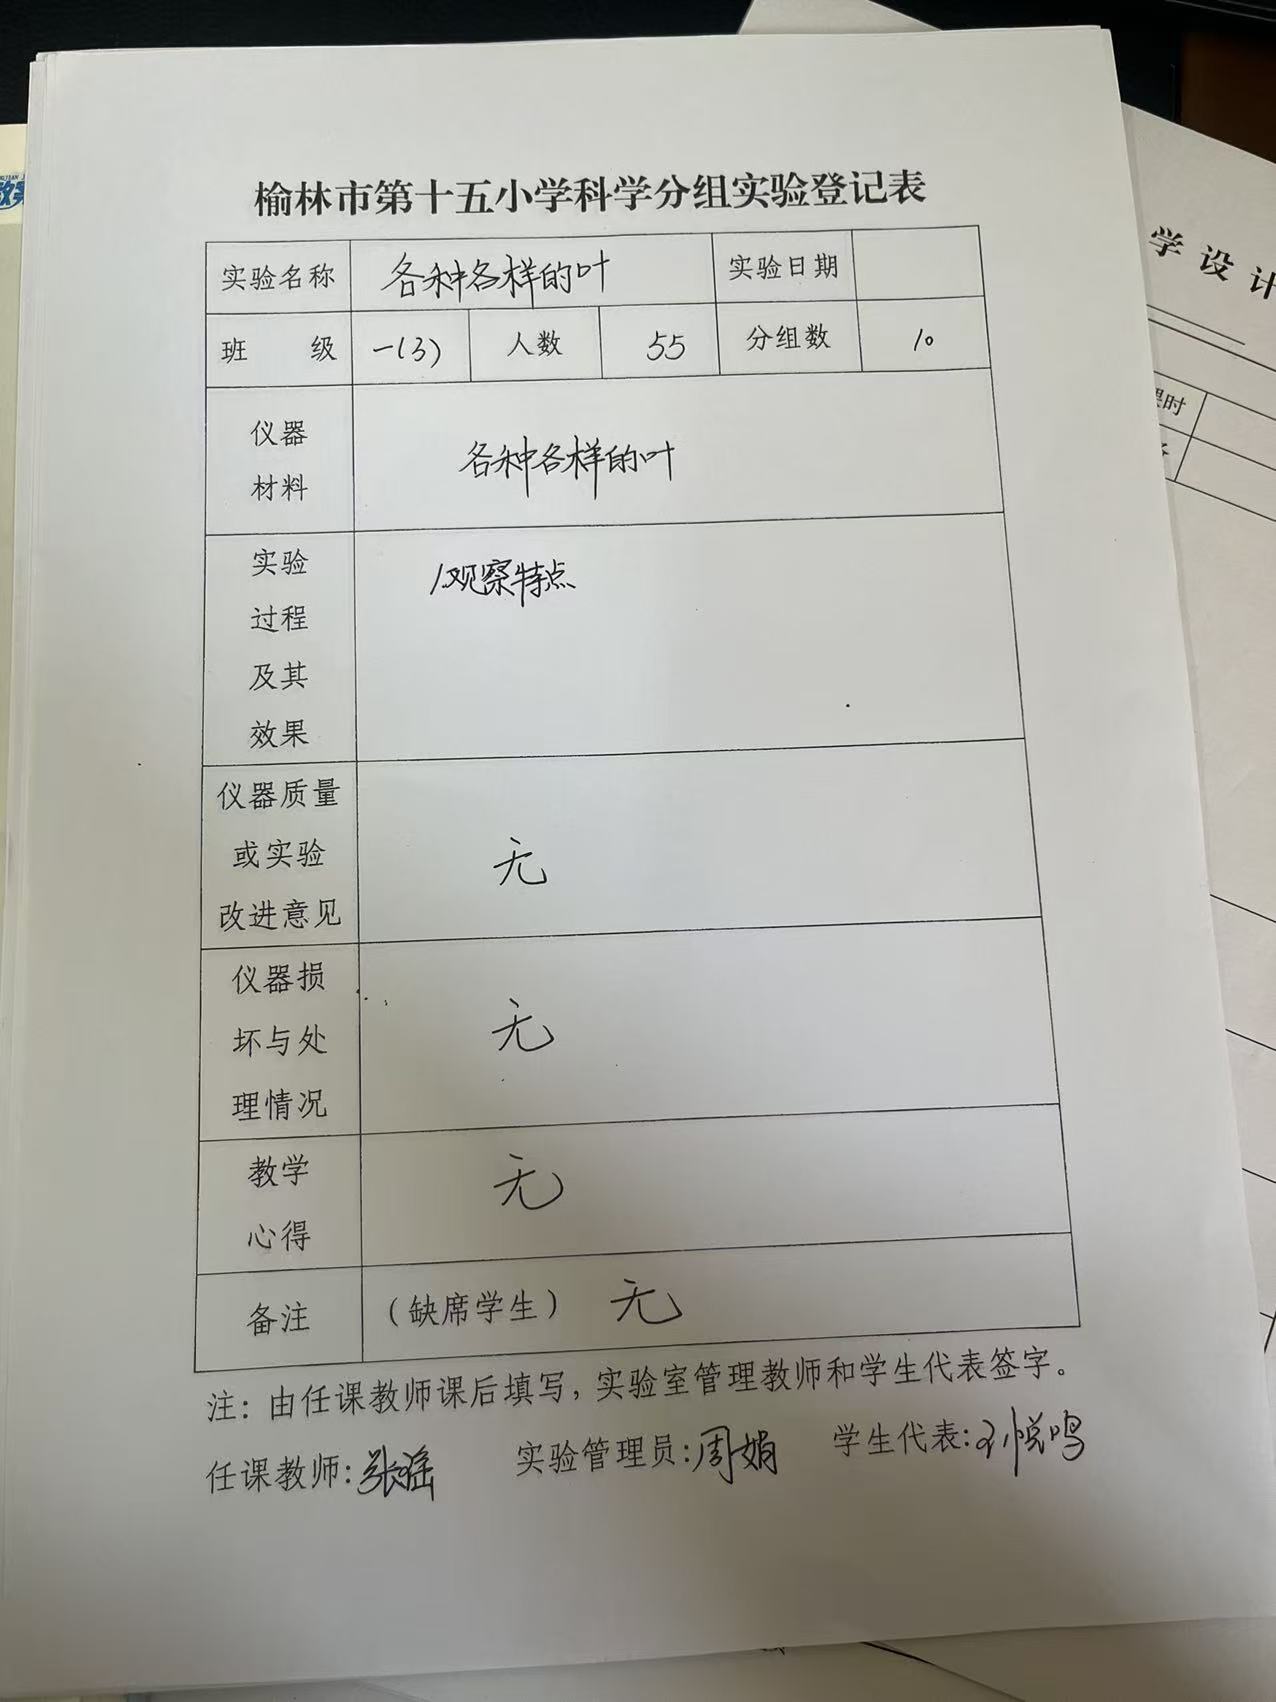 榆林市第十五小学科学分组实验登记表
实验名称 各种各样的叶 实验日期
班 级 一(3) 人数 55 分组数 10
仪器
材料
各种各样的叶
实验
过程
及其
效果
1.观察特点
仪器质量
或实验
改进意见
无
仪器损
坏与处
理情况
无
教学
心得
无
备注 （缺席学生） 无
注：由任课教师课后填写，实验室管理教师和学生代表签字。
任课教师：张瑶 实验管理员：周娟 学生代表：王悦鸣
学设计
课时